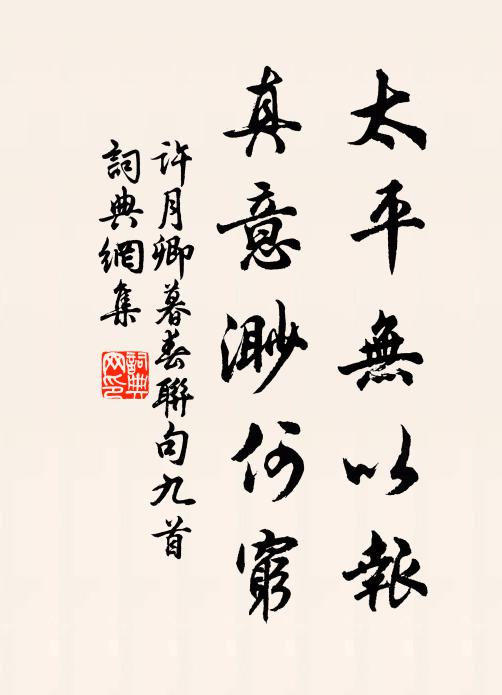 太平無以報
真意渺何窮
許月卿暮春聯句九首
詞典網集
詞典
网印